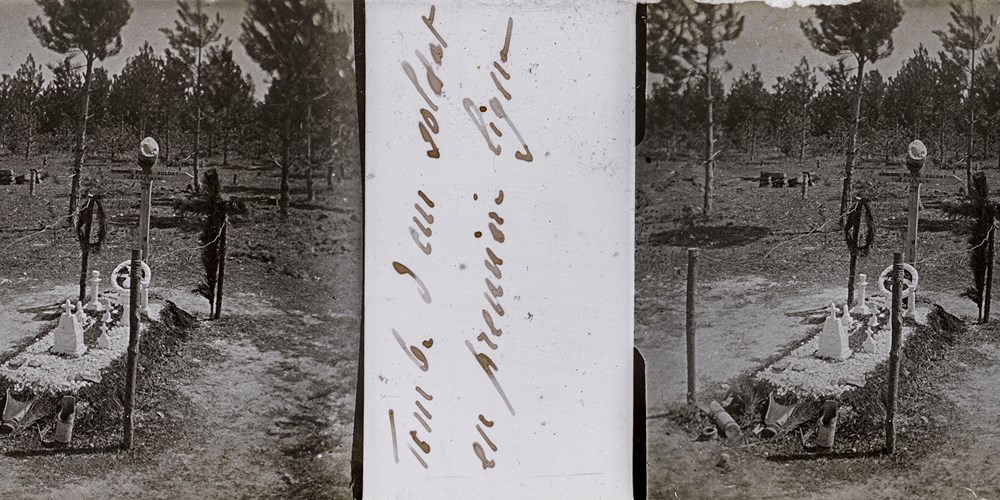 Tombe d'un soldat
en première ligne